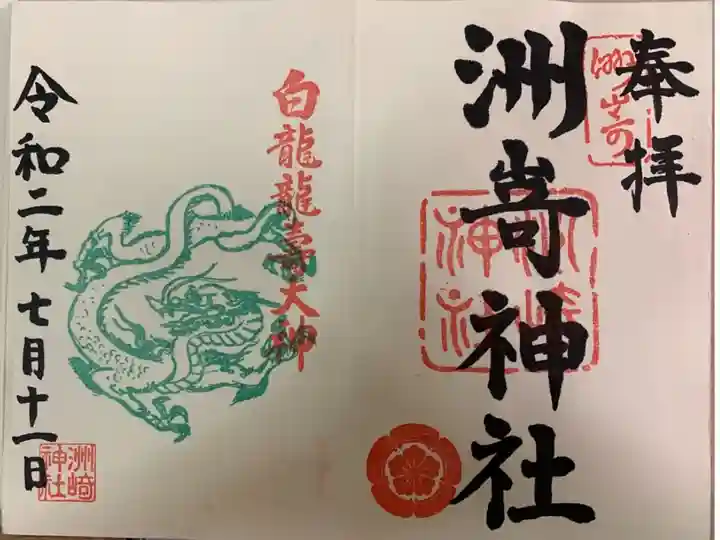 奉拝
洲嵜
洲嵜神社
洲崎神社
白龍龍壽大神
令和二年七月十一日
洲崎神社